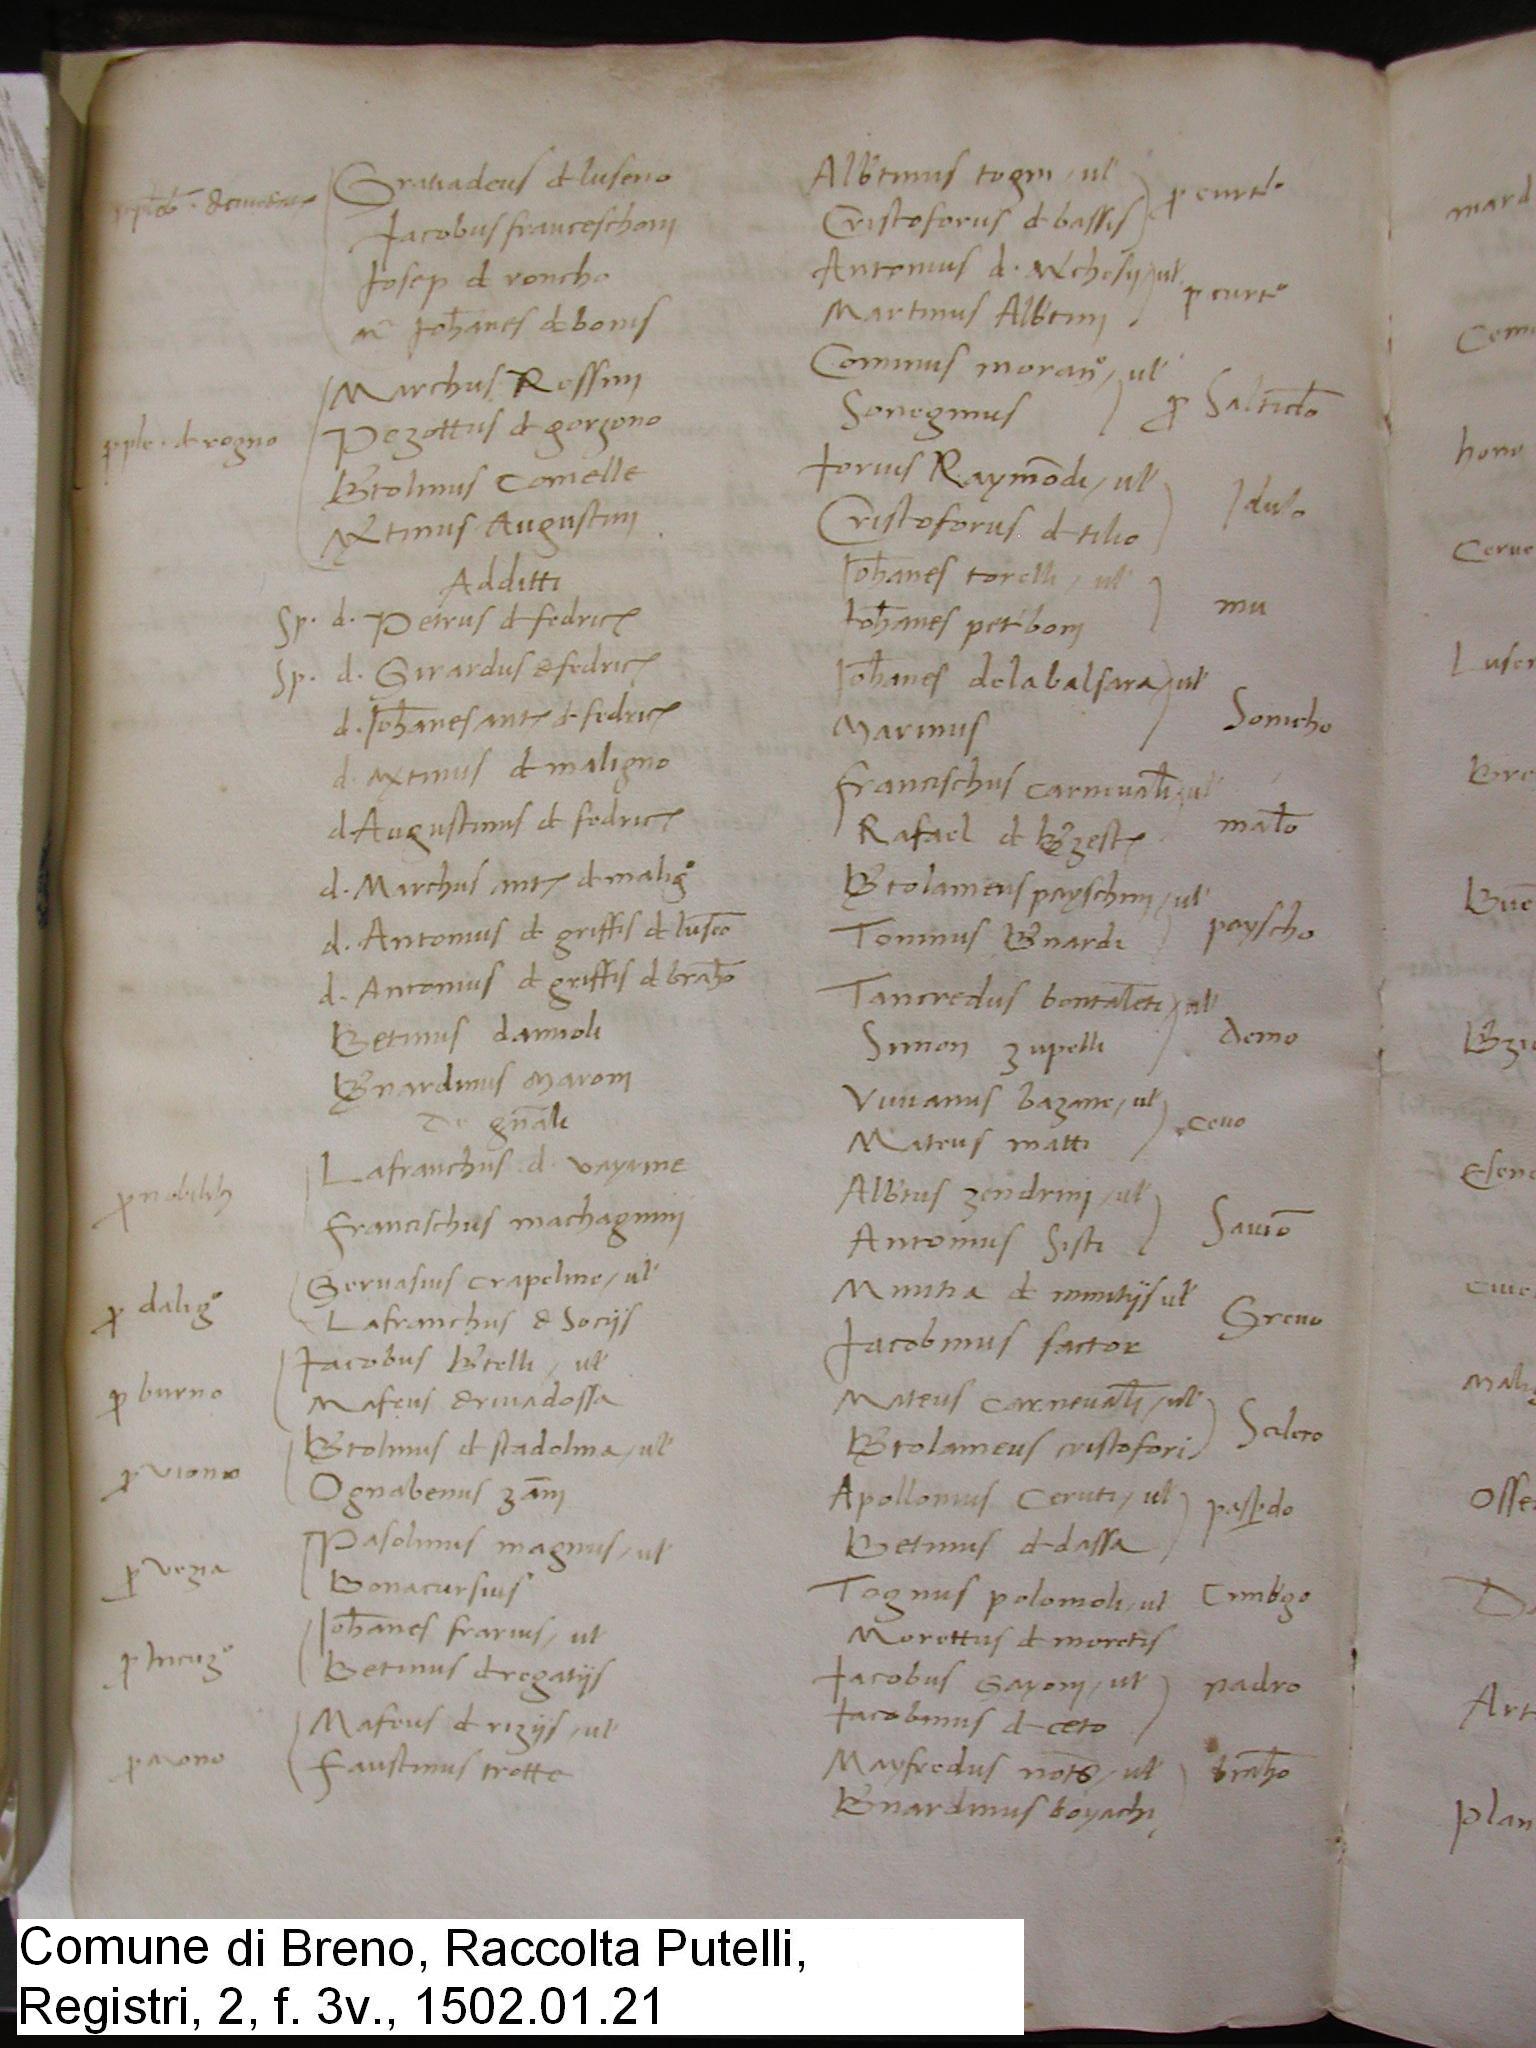 Gratiadeus de luseno
Jacobus franceschoni
Josep de roncho
Johanes de bonis
p ple. de rogno
Marchus Rossini
Pezottus de gorzono
Btolinus Comelle
Mtinus Augustini
Additti
Sp. d. Petrus de fedric
Sp. d. Girardus de fedric
d. Johanes ant de fedric
d. mtinus de maligno
d. Augustinus de fedric
d. Marchus ant de malig°
d. Antonius de griffis de lusco
d. Antonius de griffis de braho
Betinus damioli
Bnardinus Maroni
De gnali
p nobilib
Lafranchus d. vayrine
Francischus machagnini
p dalig°
Gervasius crapeline, ul
Lafranchus de Sociis
p burno
Jacobus Btelli, ul
Mafeus de rivadossa
p vione
Btolinus de stadolina, ul
Ognabenus zani
p veza
Pasolinus magnus, ul
Bonacursius
p Incuz°
Johanes frarius, ul
Betinus de regatijs
p mono
Mafeus de rizijs, ul
Faustinus trotte
Albtinus togni, ul
Cristoforus de bassis
p curt°
Antonius d. Mchesij, ul
Martinus Albtini
p curt°
Cominus moran°, ul
Soneginus
p Salto
Jorius Raymodi, ul
Cristoforus de tilio
Idulo
Johanes torelli, ul
Johanes petiboni
mu
Johanes dela balsara, ul
Marinus
Sonicho
Francischus carnevali, ul
Rafael de Bzest
malo
Btolameus payschini, ul
Toninus Bnardi
payscho
Tancredus bontaleti, ul
Simon zupelli
demo
Vivianus bazane, ul
Mateus matti
cevo
Albtus zendrini, ul
Antonius Sisti
Savio
Minitia de minitijs ul
Jacobinus factor
Grevo
Mateus carnevali, ul
Btolameus cristofori
Sclero
Apollonius Ceruti, ul
Betinus de dassa
paspdo
Tognus polomoli, ul
Morettus de moretis
Cimbgo
Jacobus Sayoni, ul
Jacobinus de ceto
nadro
Mayfredus not, ul
Bnardinus boyachi
braho
mard
Cem
hono
Cerve
Luser
Bre
Bue
Bzi
Esen
Cive
Malig
Osse
Art
plan
Comune di Breno, Raccolta Putelli,
Registri, 2, f. 3v., 1502.01.21